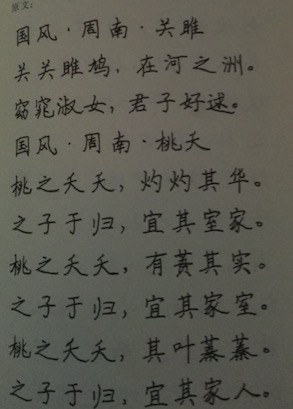 原文:
国风·周南·关雎
关关雎鸠，在河之洲。
窈窕淑女，君子好逑。
国风·周南·桃夭
桃之夭夭，灼灼其华。
之子于归，宜其室家。
桃之夭夭，有蕡其实。
之子于归，宜其家室。
桃之夭夭，其叶蓁蓁。
之子于归，宜其家人。